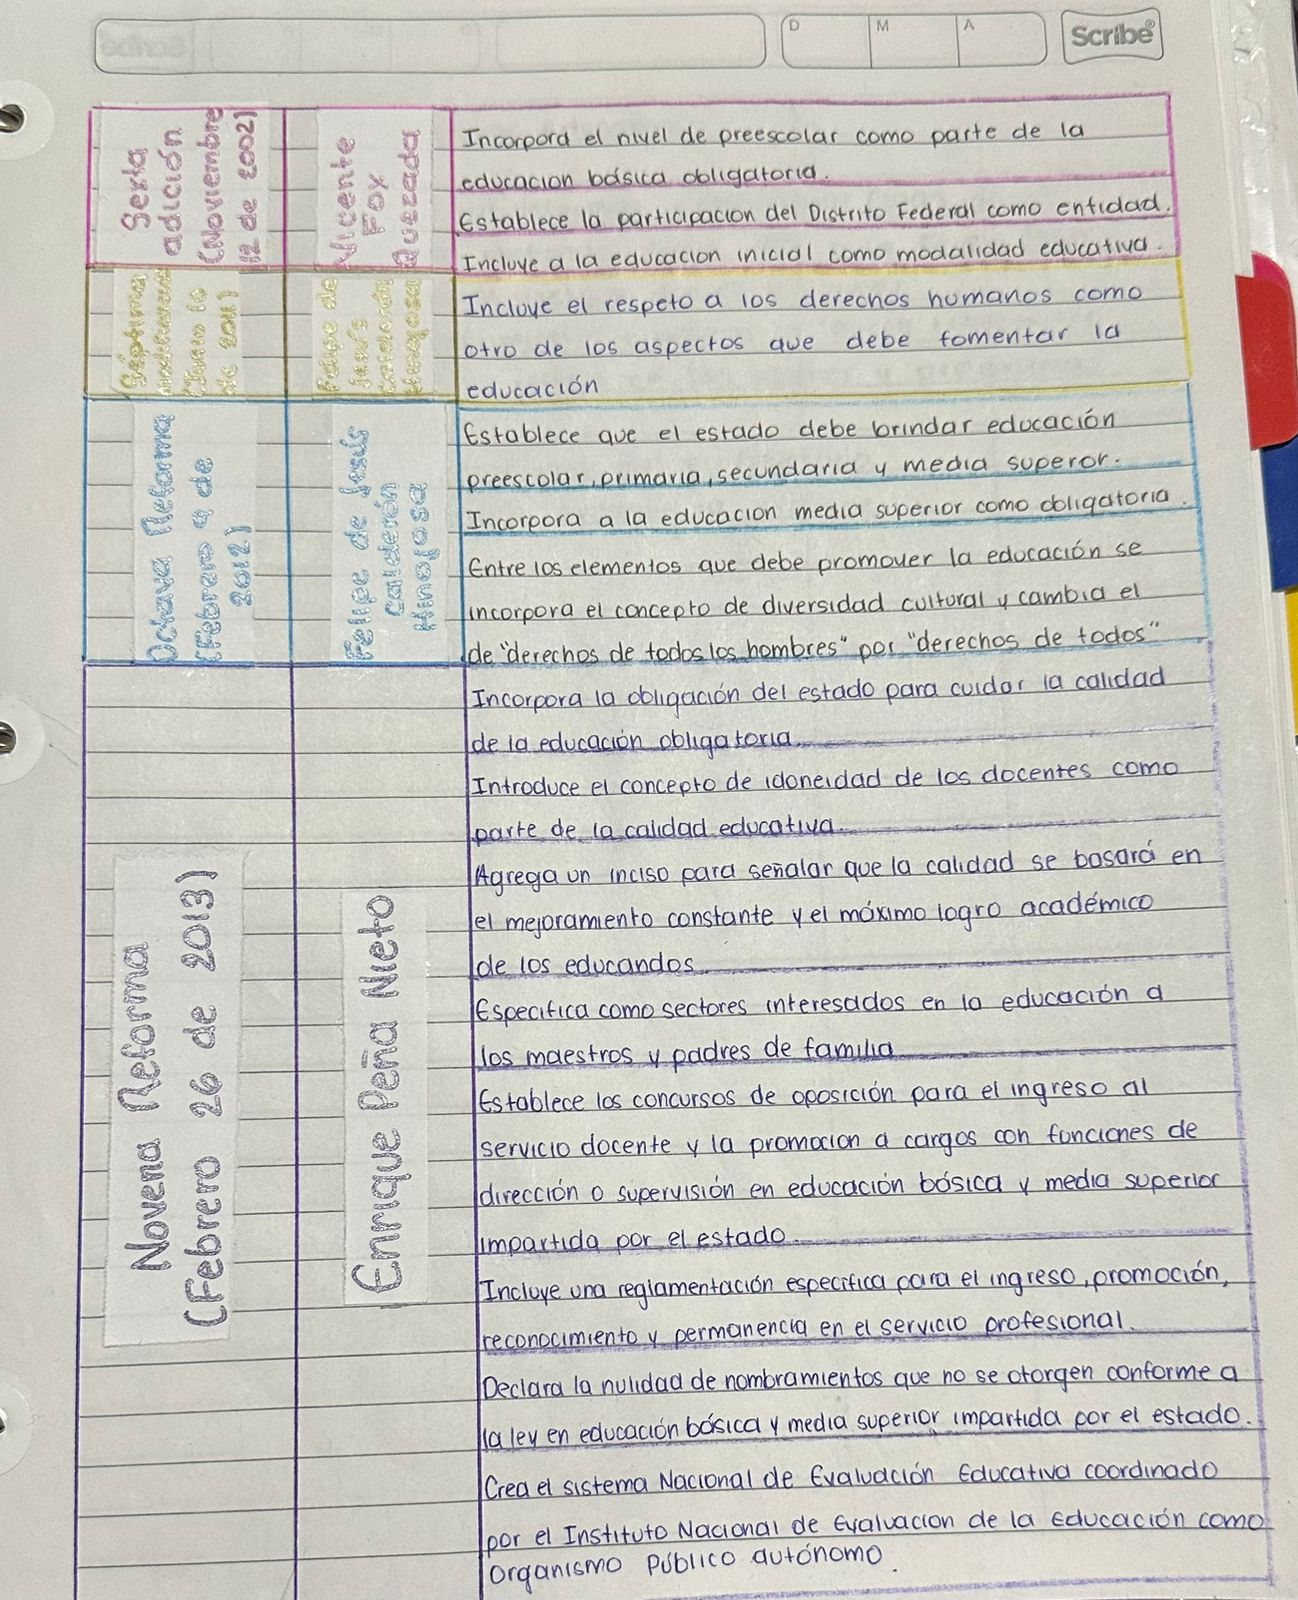 D M A Scribe
Sexta
adición
(Noviembre
12 de 2002)
Vicente
Fox
Quezada
Incorpora el nivel de preescolar como parte de la
educacion básica obligatoria.
Establece la participacion del Distrito Federal como entidad.
Incluye a la educacion inicial como modalidad educativa.
Séptima
(Junio 10
de 2011)
Felipe de
Jesús
Calderón
Hinojosa
Incluye el respeto a los derechos humanos como
otro de los aspectos que debe fomentar la
educación
Octava Reforma
(Febrero 9 de
2012)
Felipe de Jesús
Calderón
Hinojosa
Establece que el estado debe brindar educación
preescolar, primaria, secundaria y media superor.
Incorpora a la educacion media superior como obligatoria.
Entre los elementos que debe promover la educación se
incorpora el concepto de diversidad cultural y cambia el
de "derechos de todos los hombres" por "derechos de todos"
Novena Reforma
(Febrero 26 de 2013)
Enrique Peña Nieto
Incorpora la obligación del estado para cuidar la calidad
de la educación obligatoria.
Introduce el concepto de idoneidad de los docentes como
parte de la calidad educativa.
Agrega un inciso para señalar que la calidad se basará en
el mejoramiento constante y el máximo logro académico
de los educandos.
Especifica como sectores interesados en la educación a
los maestros y padres de familia
Establece los concursos de oposición para el ingreso al
servicio docente y la promocion a cargos con funciones de
dirección o supervisión en educación básica y media superior
impartida por el estado.
Incluye una reglamentación especifica para el ingreso, promoción,
reconocimiento y permanencia en el servicio profesional.
Declara la nulidad de nombramientos que no se otorgen conforme a
la ley en educación básica y media superior impartida por el estado.
Crea el sistema Nacional de Evaluación Educativa coordinado
por el Instituto Nacional de Evaluacion de la Educación como
Organismo Público autónomo.